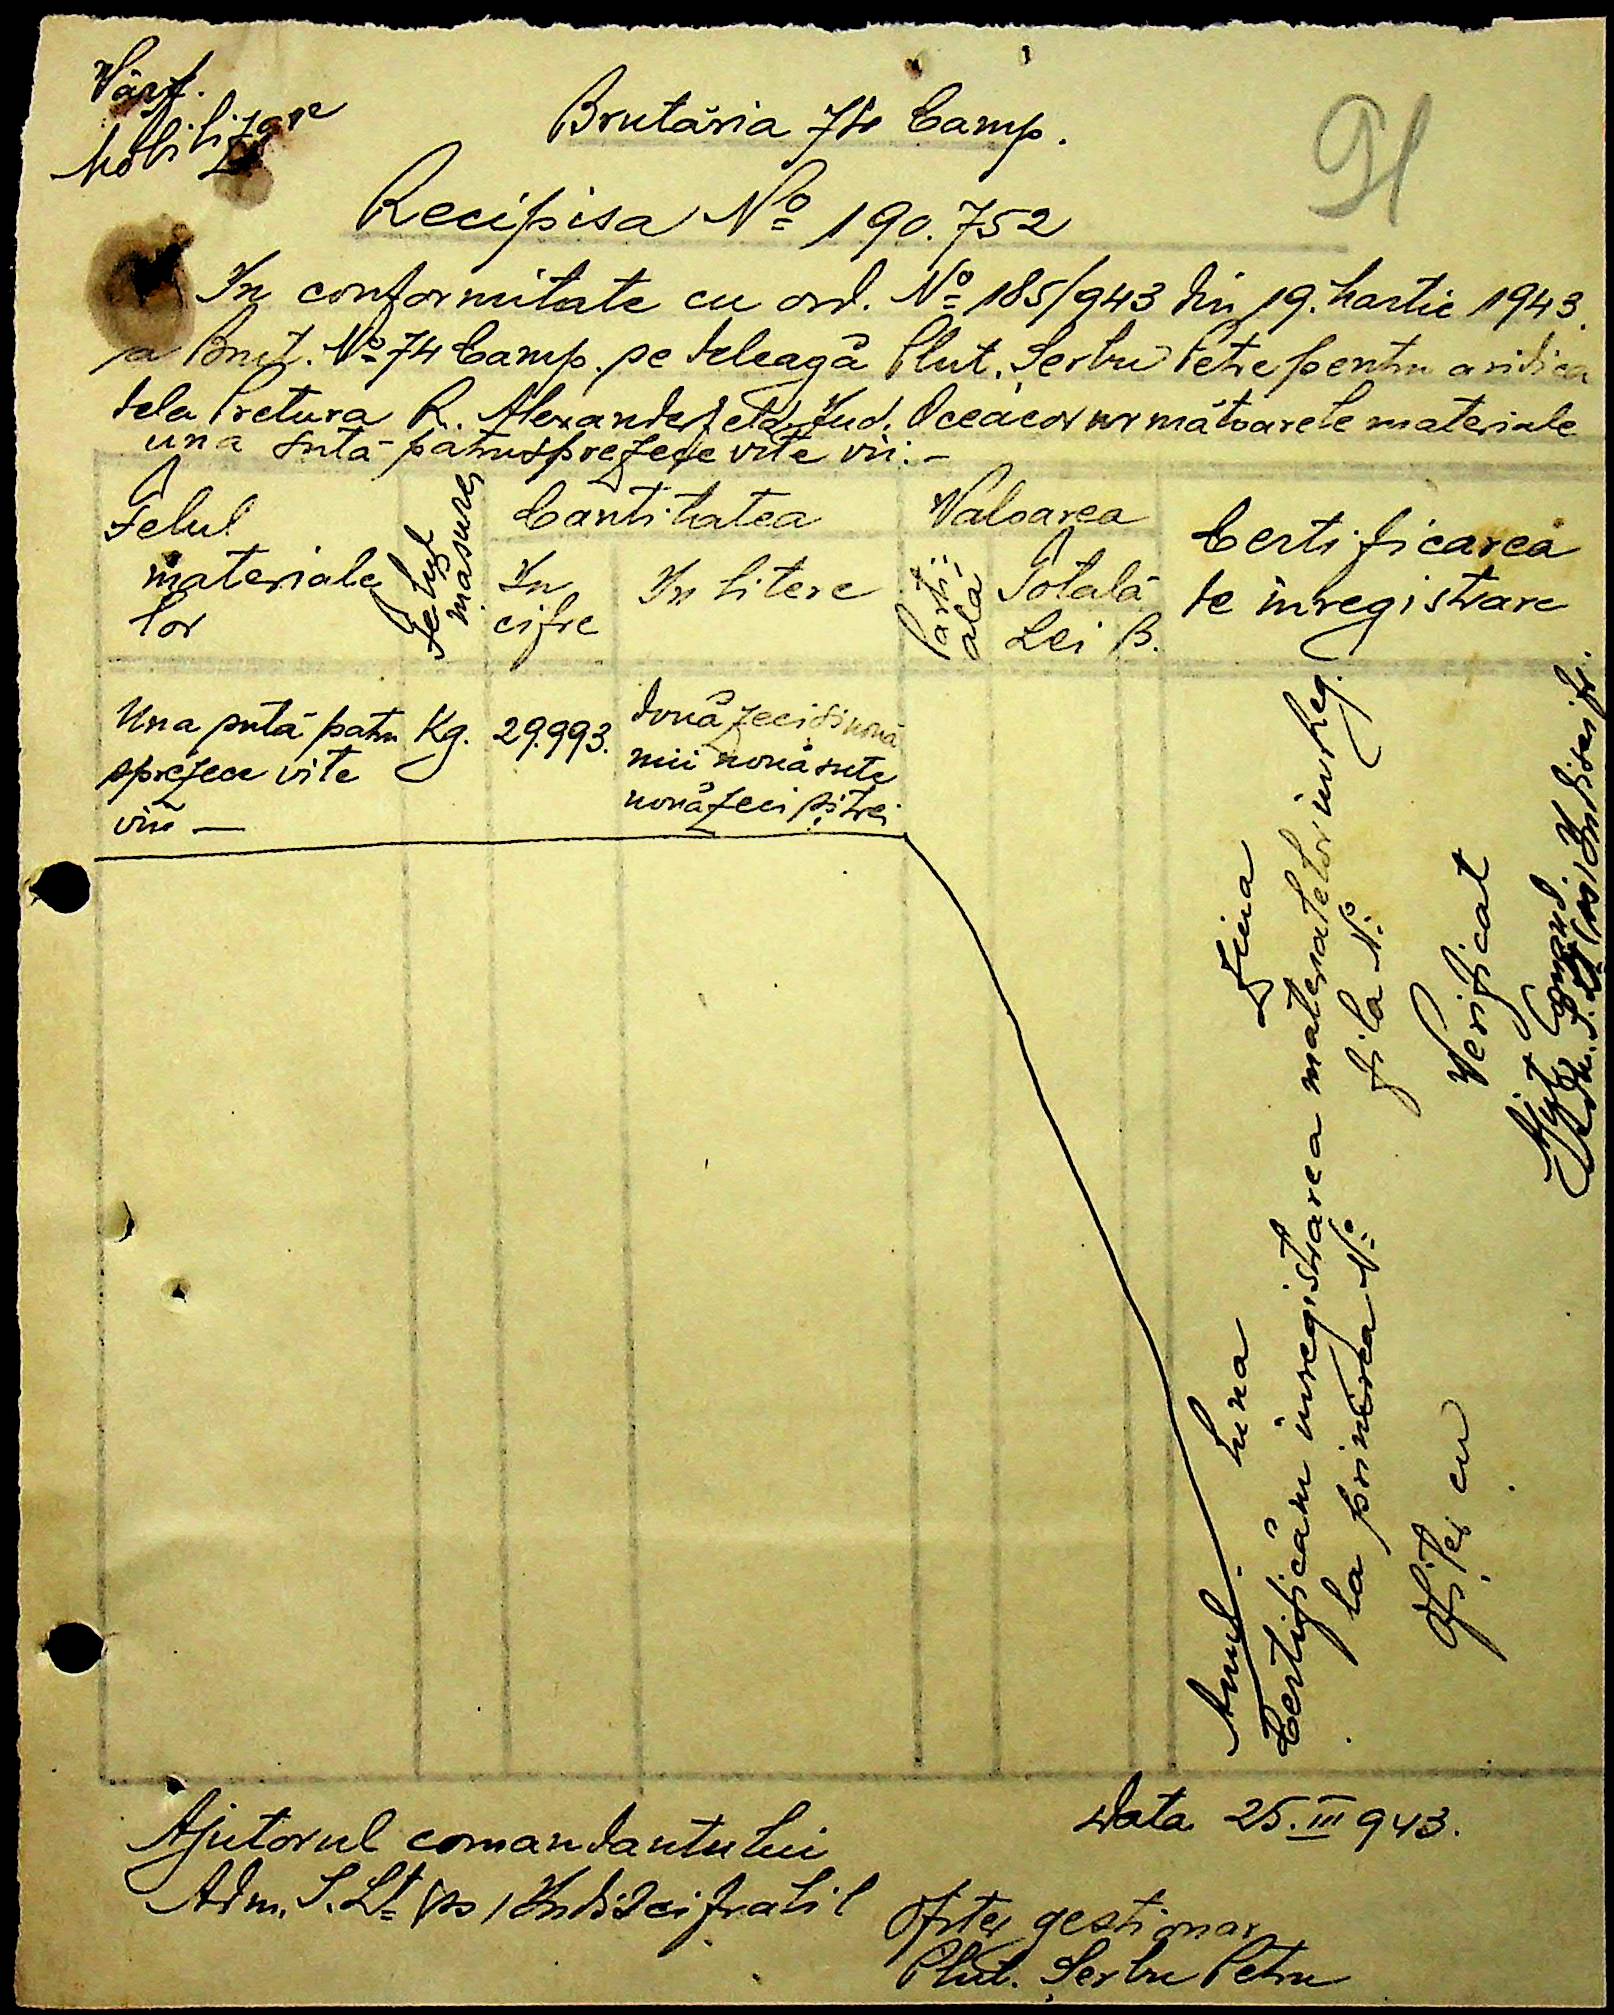 Vârf.
Mobilizare
Brutăria 74 Camp.
91
Recipisa No 190.752
In conformitate cu ord. No 185/943 din 19. Martie 1943.
a Brut. No 74 Camp. se deleagă Plut. Șerbu Petre pentru a ridica
dela Pretura R. Alexanderfeld Jud. Oceacov următoarele materiale
una sută patrusprezece vite vii:-
Felul
materiale
lor
Felul
măsurei
Cantitatea
In
cifre
In litere
Valoarea
Parți-
ală
Totală
Lei B.
Certificarea
de inregistrare
Una sută patru
sprezece vite
vii —
Kg.
29.993.
două zeci și nouă
mii nouă sute
nouă zeci și trei
Anul Luna Ziua
Certificăm inregistrarea materialelor in Reg.
la primirea No fila No
Ofițer cu Verificat
Ajut. Comand.
Adm. S. Lt (ss) Indiscifr.
Data 25.III 943.
Ajutorul comandantului
Adm. S. Lt (ss) Indiscifrabil
Ofițer gestionar
Plut. Șerbu Petru